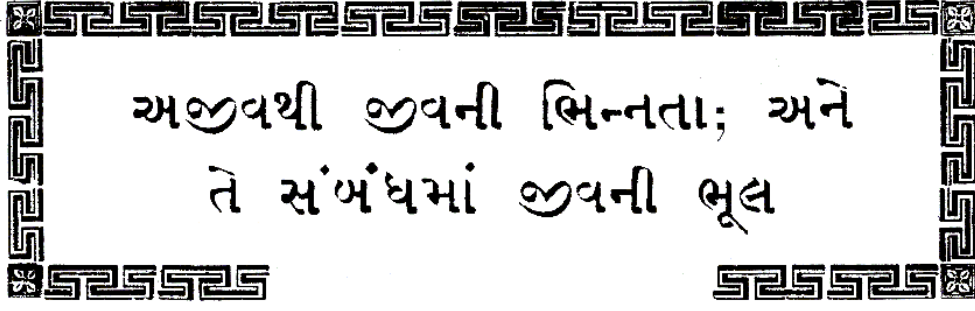 અજીવથી જીવની ભિન્નતા; અને
તે સંબંધમાં જીવની ભૂલ